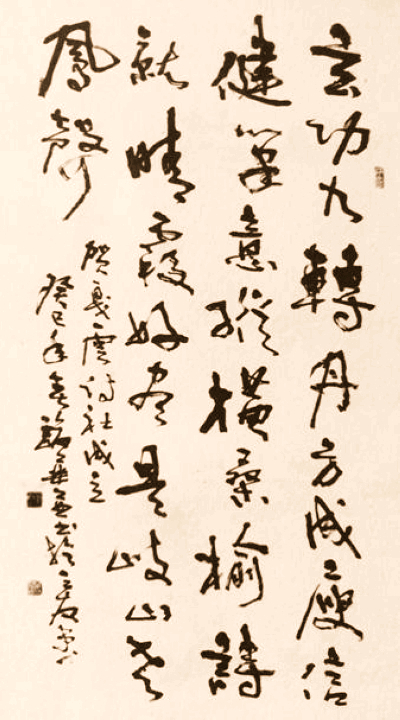 玄功九轉丹方成庾信
健筆意縱橫桑榆詩
就晴霞好尽是岐山老
鳳聲
賀雲詩社成立
癸巳年春